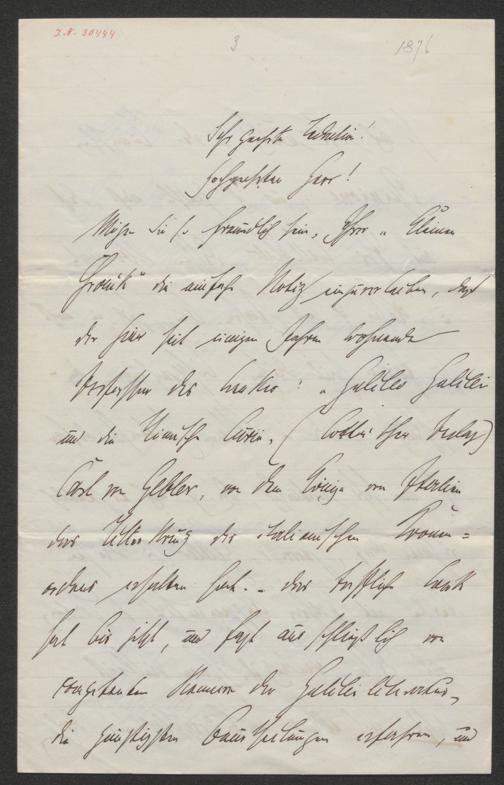 J.N. 30444
3
1876
Sehr geehrte Redaktion!
Hochgeehrter Herr!
Mögen Sie so freundlich sein, Ihrer „Kleinen
Chronik" die einfache Notiz einzuverleiben, daß
der hier seit einigen Jahren wohnende
Verfasser des Werkes: „Galileo Galilei
und die Römische Curie" (Cotta'scher Verlag)
Carl von Gebler, von dem Könige von Italien
das Ritterkreuz des italienischen Kronen=
ordens erhalten hat. – Das treffliche Werk
hat bis jetzt, und fast ausschließlich von
competenten Kennern der Galilei Literatur,
die günstigsten Beurtheilungen erfahren, und